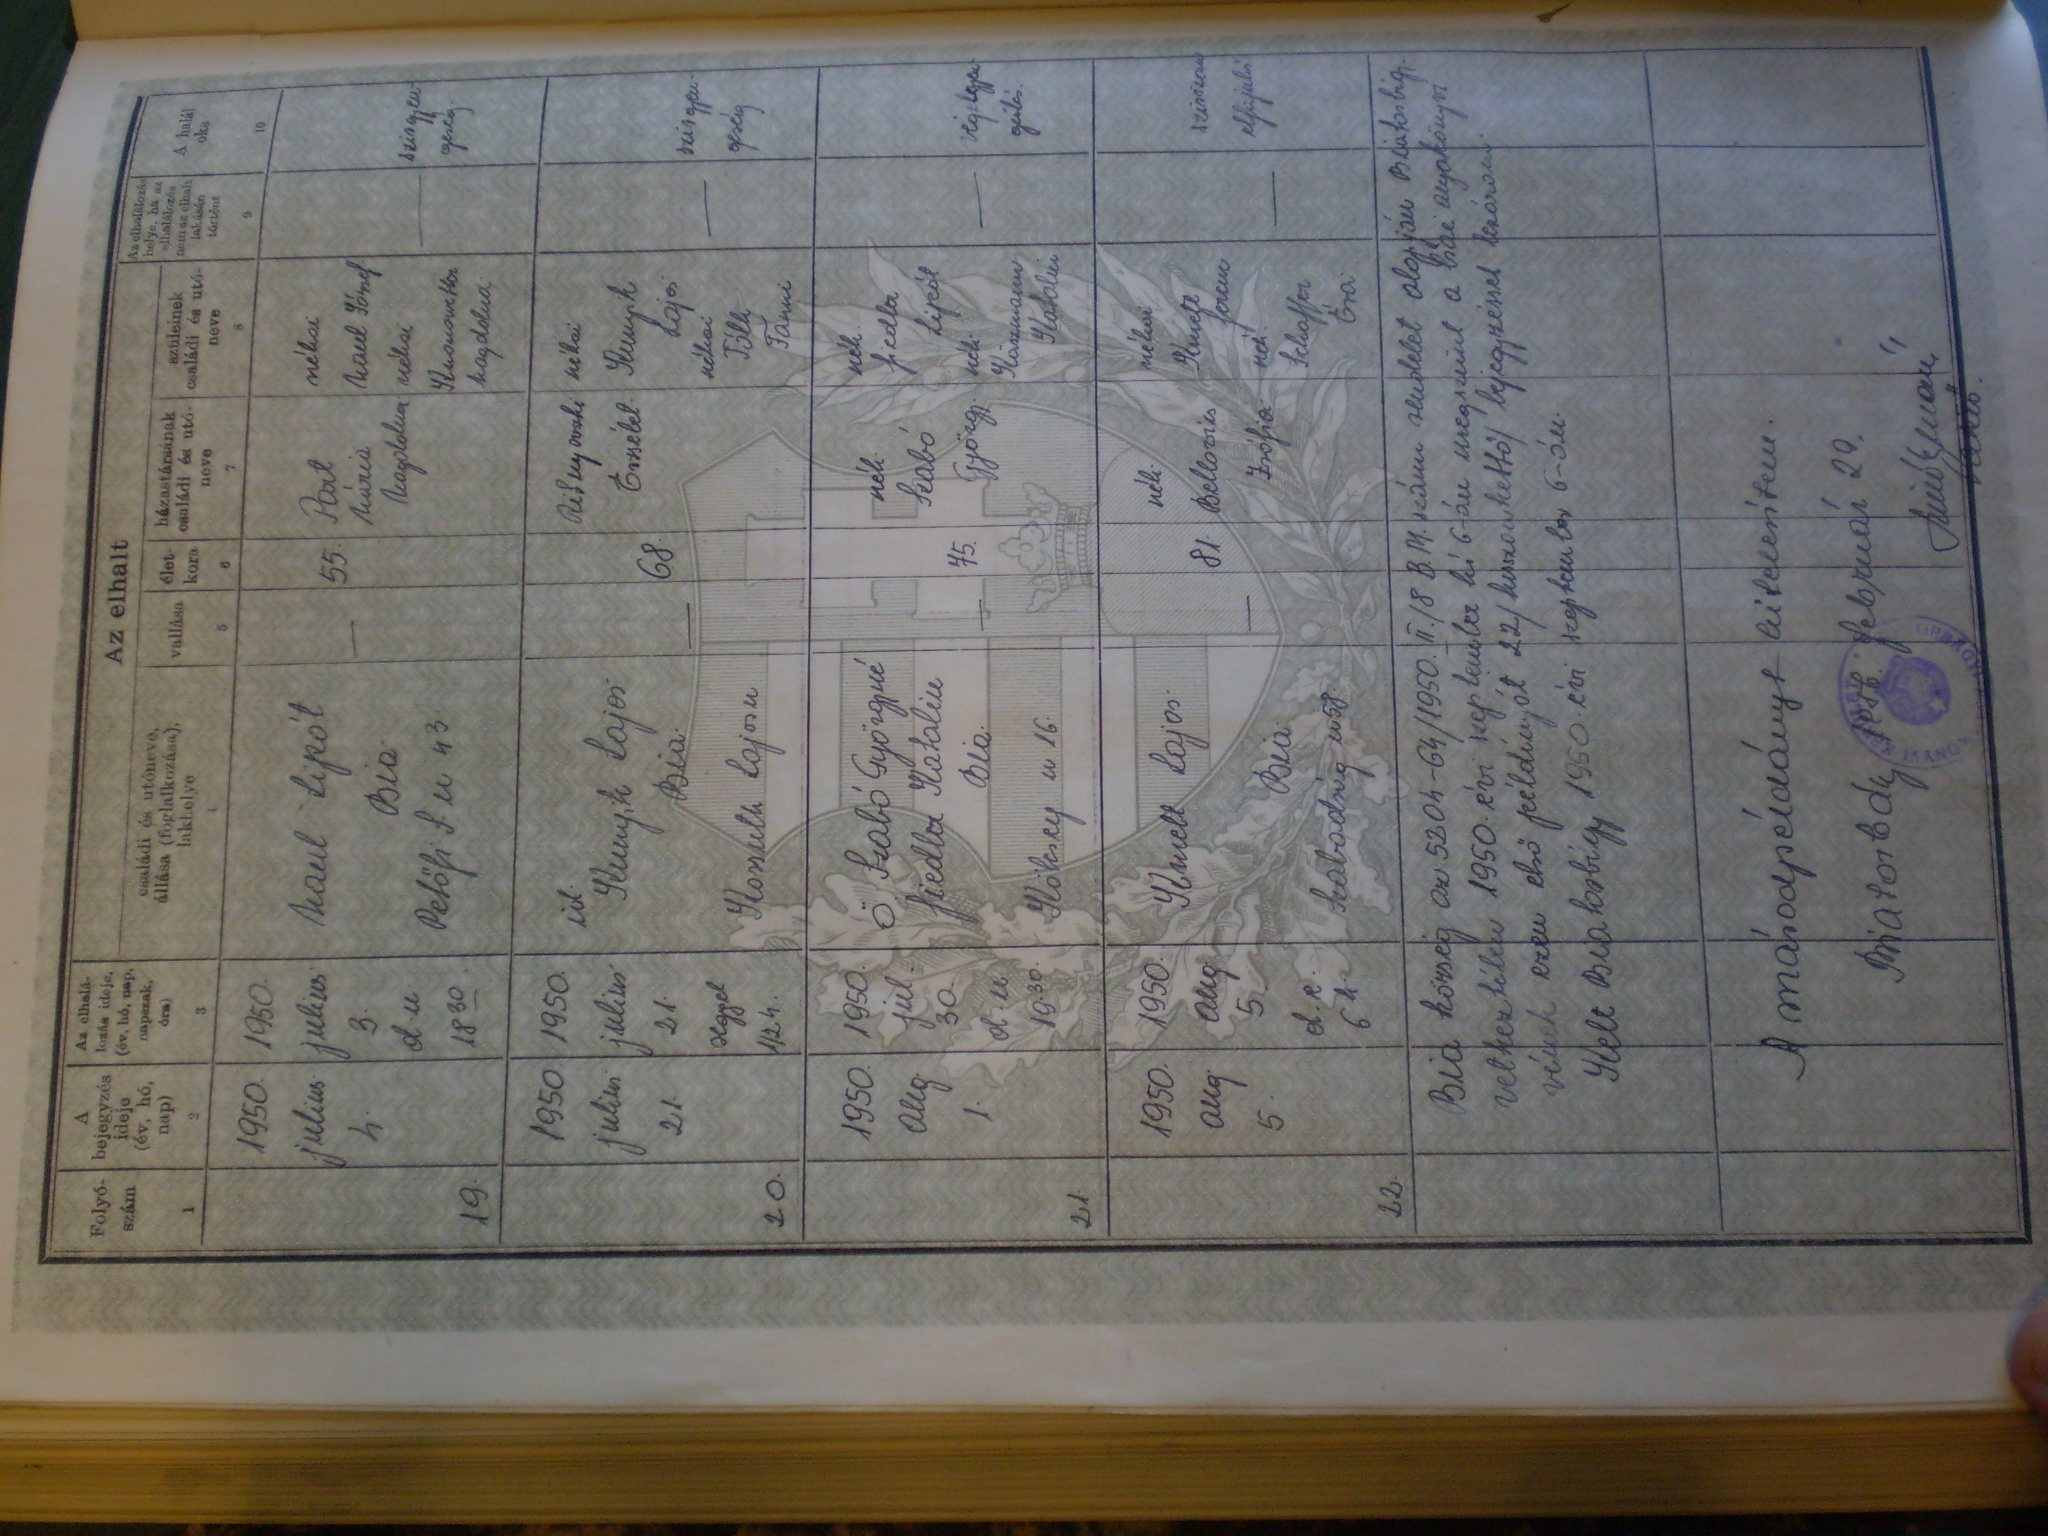 Az elhalt
Folyó-
szám
A
bejegyzés
ideje
(év, hó,
nap)
Az elhalá-
lozás ideje,
(év, hó, nap,
napszak,
óra)
családi és utóneve,
állása (foglalkozása),
lakhelye
vallása
élet-
kora
házastársának
családi és utó-
neve
szüleinek
családi és utó-
neve
Az elhalálozás
helye, ha az
elhalálozás
nem az elhalt
lakásán
történt
A halál
oka
1
2
3
4
5
6
7
8
9
10
19.
1950.
julius
4.
1950.
julius
3.
d u
18 30
Lipót
Bia
Petőfi S u 43
—
55.
Mária
Magdolna
néhai
József
néhai
Magdolna
—
szivgyen-
geség.
20.
1950.
julius
21.
1950.
julius
21.
reggel
1/2 4.
id.
Lajos
Bia.
Kossuth Lajos u
—
68.
Erzsébet.
néhai
Lajos
néhai
Tóth
Fánni
—
szivgyen-
geség
21.
1950.
aug
1.
1950.
jul
30.
d. u.
19.30.
Ö. Szabó Györgyné
Fiedler Katalin
Bia.
Kökény u 16.
—
75.
néh.
Szabó
György.
néh.
Fiedler
Lipót
néh.
Katalin
—
végelgyen-
gülés.
22.
1950.
aug
5.
1950.
aug
5.
d. e.
6 4.
Lajos.
Bia.
Szabadság u 58.
—
81.
néh.
Zsófia.
néhai
Ferenc
néh.
Schaffer
Éva
—
Bia község az 5204-64/1950. II./8 B. M. számu rendelet alapján Biatorbágy-
1950. évi szeptember hó 6-án megszünt a biai anyakönyvi
ezen első példányát 22/huszonkettő/ bejegyzéssel lezárom.
Kelt Biatorbágy 1950. évi szeptember 6-án.
A másodpéldányt hitelesitem.
Biatorbágy február 29.